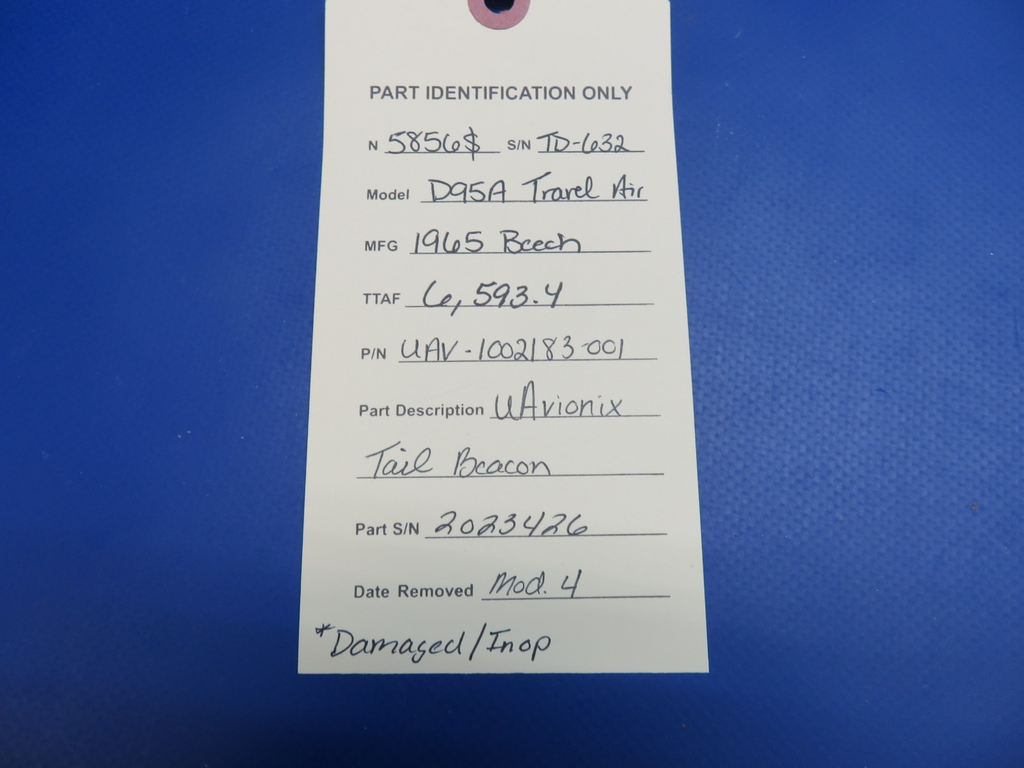 PART IDENTIFICATION ONLY
N 5856$ S/N TD-632
Model D95A Travel Air
MFG 1965 Beech
TTAF 6,593.4
P/N UAV-1002183-001
Part Description UAvionix
Tail Beacon
Part S/N 2023426
Date Removed Mod. 4
*Damaged/Inop